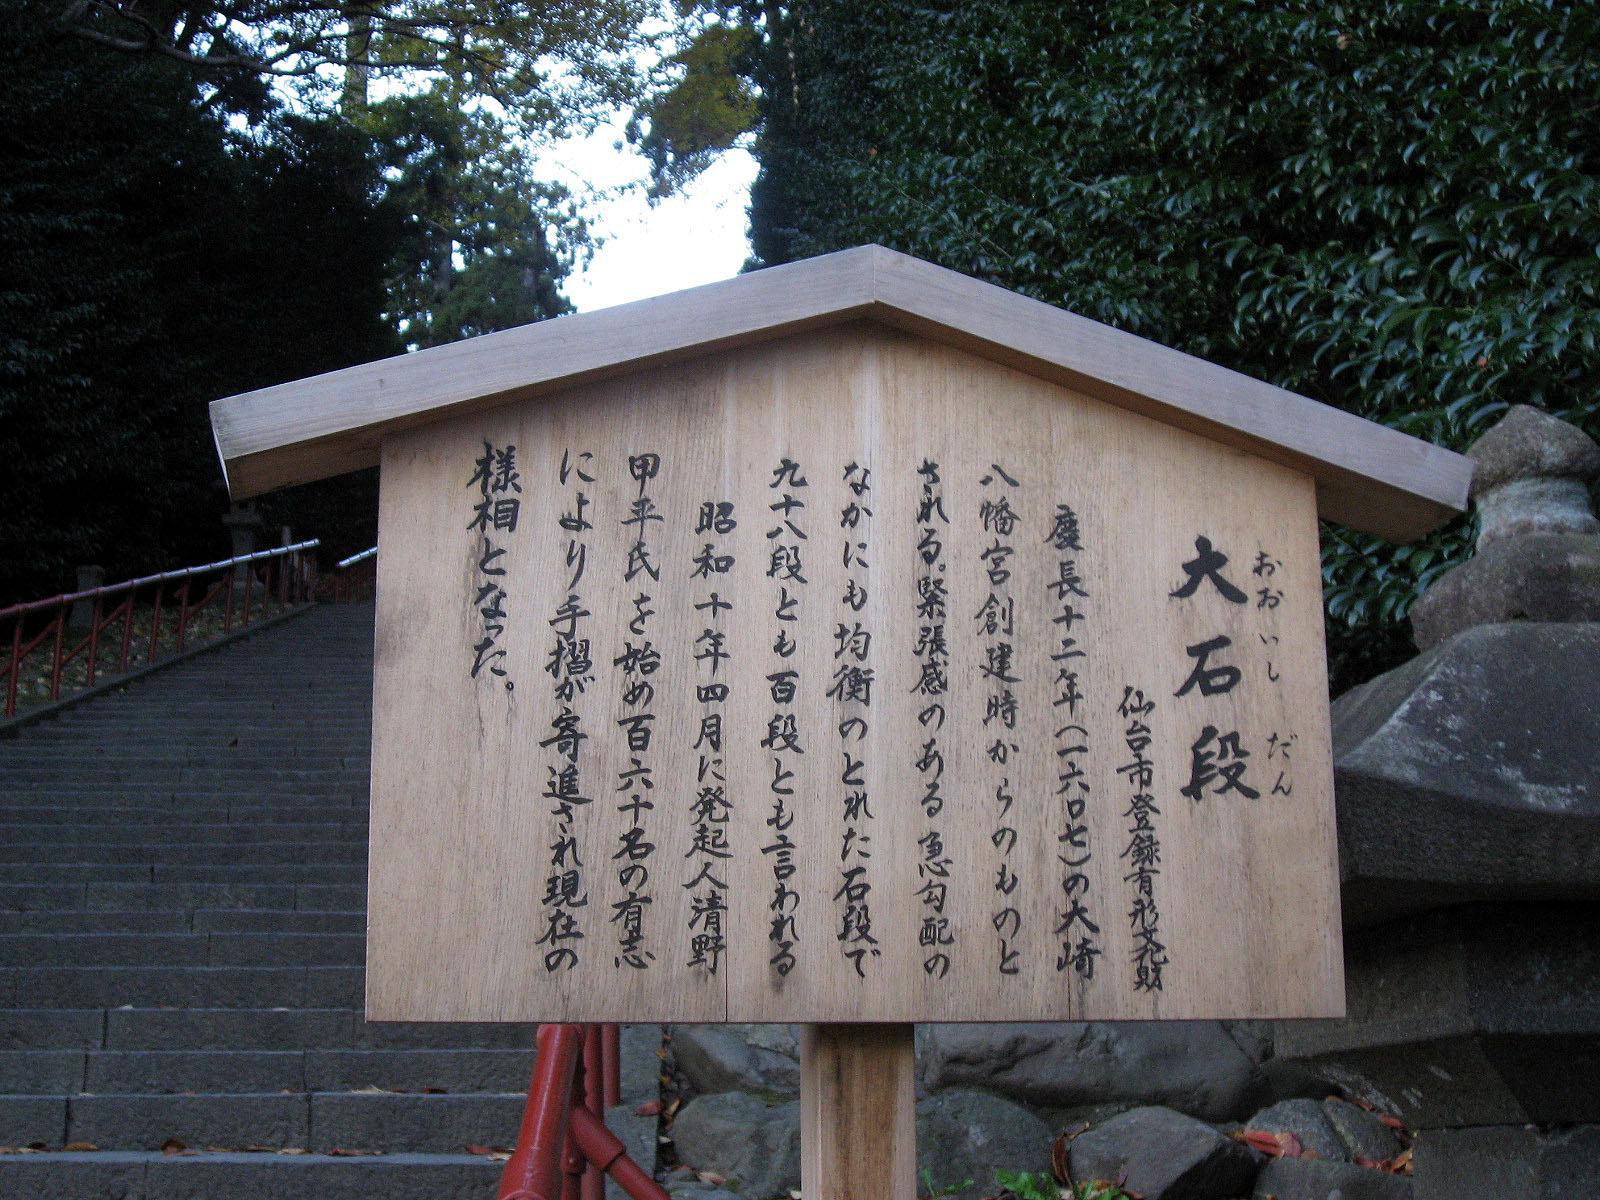 おおいしだん
大石段
仙台市登録有形文化財
慶長十二年(一六〇七)の大崎
八幡宮創建時からのものと
される。緊張感のある急勾配の
なかにも均衡のとれた石段で
九十八段とも百段とも言われる
昭和十年四月に発起人清野
甲平氏を始め百六十名の有志
により手摺が寄進され現在の
様相となった。